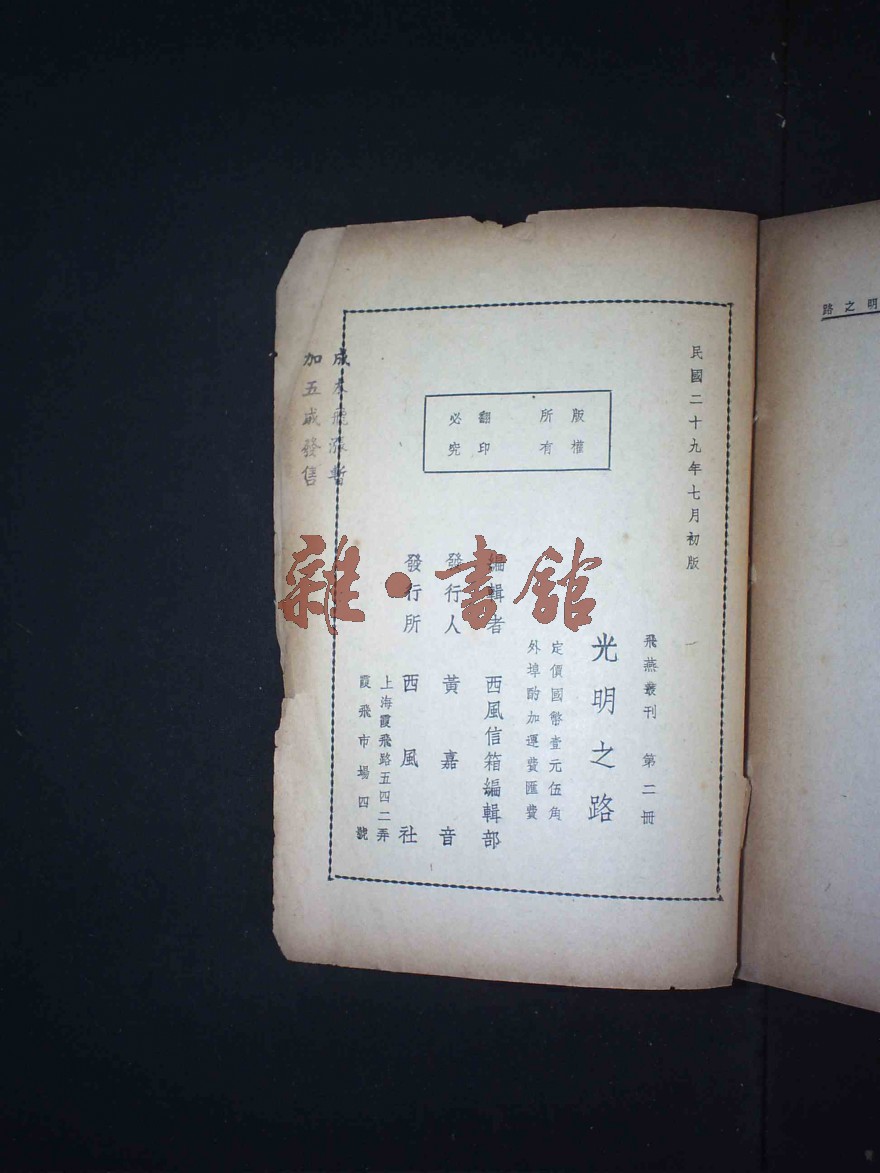 明之路
民國二十九年七月初版
版權
所有
翻印
必究
飛燕叢刊 第二冊
光明之路
定價國幣壹元伍角
外埠酌加運費匯費
編輯者 西風信箱編輯部
發行人 黃嘉音
發行所 西風社
上海霞飛路五四二弄
霞飛市場四號
成本飛漲暫
加五成發售
雜·書館